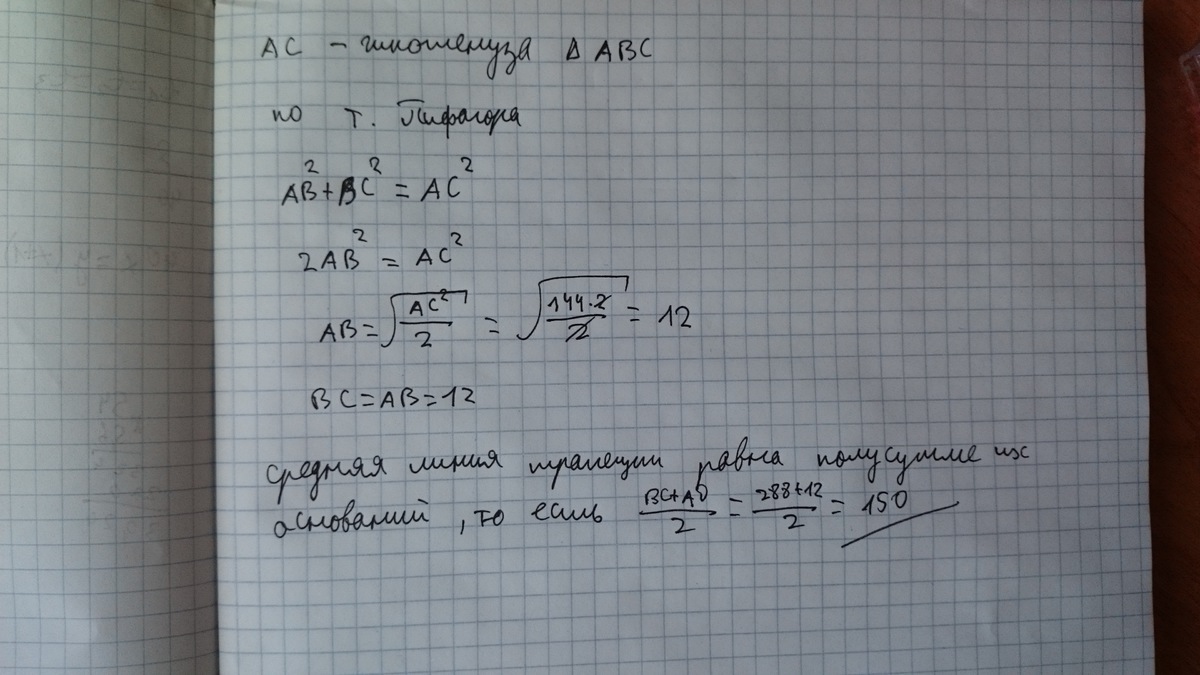 AC – гипотенуза Δ ABC
по т. Пифагора
AB² + BC² = AC²
2AB² = AC²
AB = √(AC²/2) = √(144·2/2) = 12
BC = AB = 12
средняя линия трапеции равна полусумме их
оснований, то есть (BC+AD)/2 = (288+12)/2 = 150